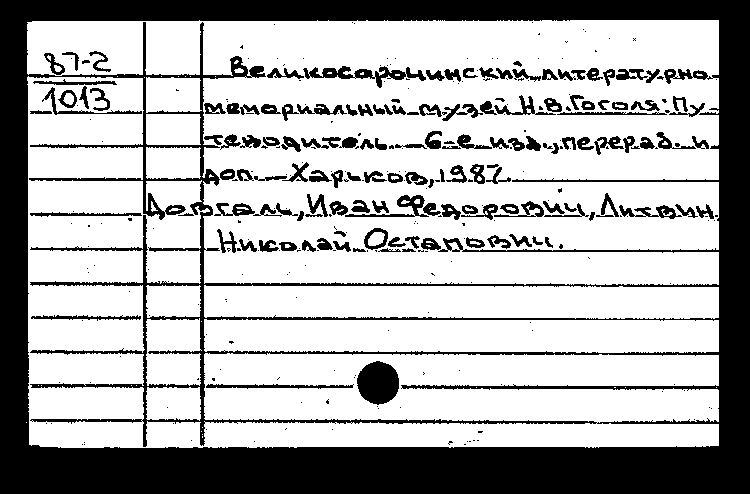 87-2
1013
Великосорочинский литературно-
мемориальный музей Н.В.Гоголя: Пу-
теводитель. – 6-е изд., перераб. и
доп. – Харьков, 1987.
Довгаль, Иван Федорович, Литвин,
Николай Остапович.